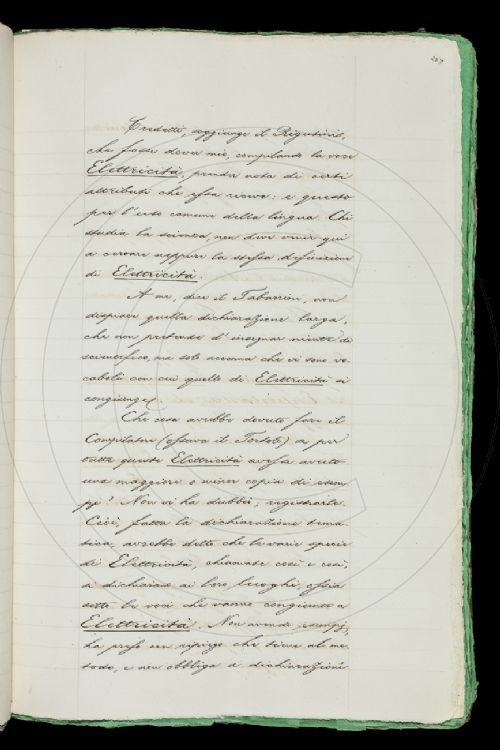 267
Credetti, soggiunge il Rigutini,
che fosse dover mio, compilando la voce
Elettricità, prender nota di certi
attributi che essa riceve: e questo
per l'uso comune della lingua. Chi
studia la scienza, non deve venir qui
a cercare neppure la stessa definizione
di Elettricità.
A me, dice il Tabarrini, non
dispiace quella dichiarazione larga,
che non pretende d'insegnar niente di
scientifico, ma solo accenna che vi sono vo-
caboli con cui quello di Elettricità si
congiunge.
Che cosa avrebbe dovuto fare il
Compilatore (osserva il Tortoli) se per
tutte queste Elettricità avesse avuto
una maggiore o minor copia di esem-
pj? Non vi ha dubbio, registrarle.
Cioè, fatta la dichiarazione tema-
tica, avrebbe detto che le varie specie
di Elettricità, chiamate così e così,
si dichiarano ai loro luoghi, ossia
sotto le voci che vanno congiunte a
Elettricità. Non avendo esempj,
ha preso un ripiego che tiene al me-
todo, e non obbliga a dichiarazioni